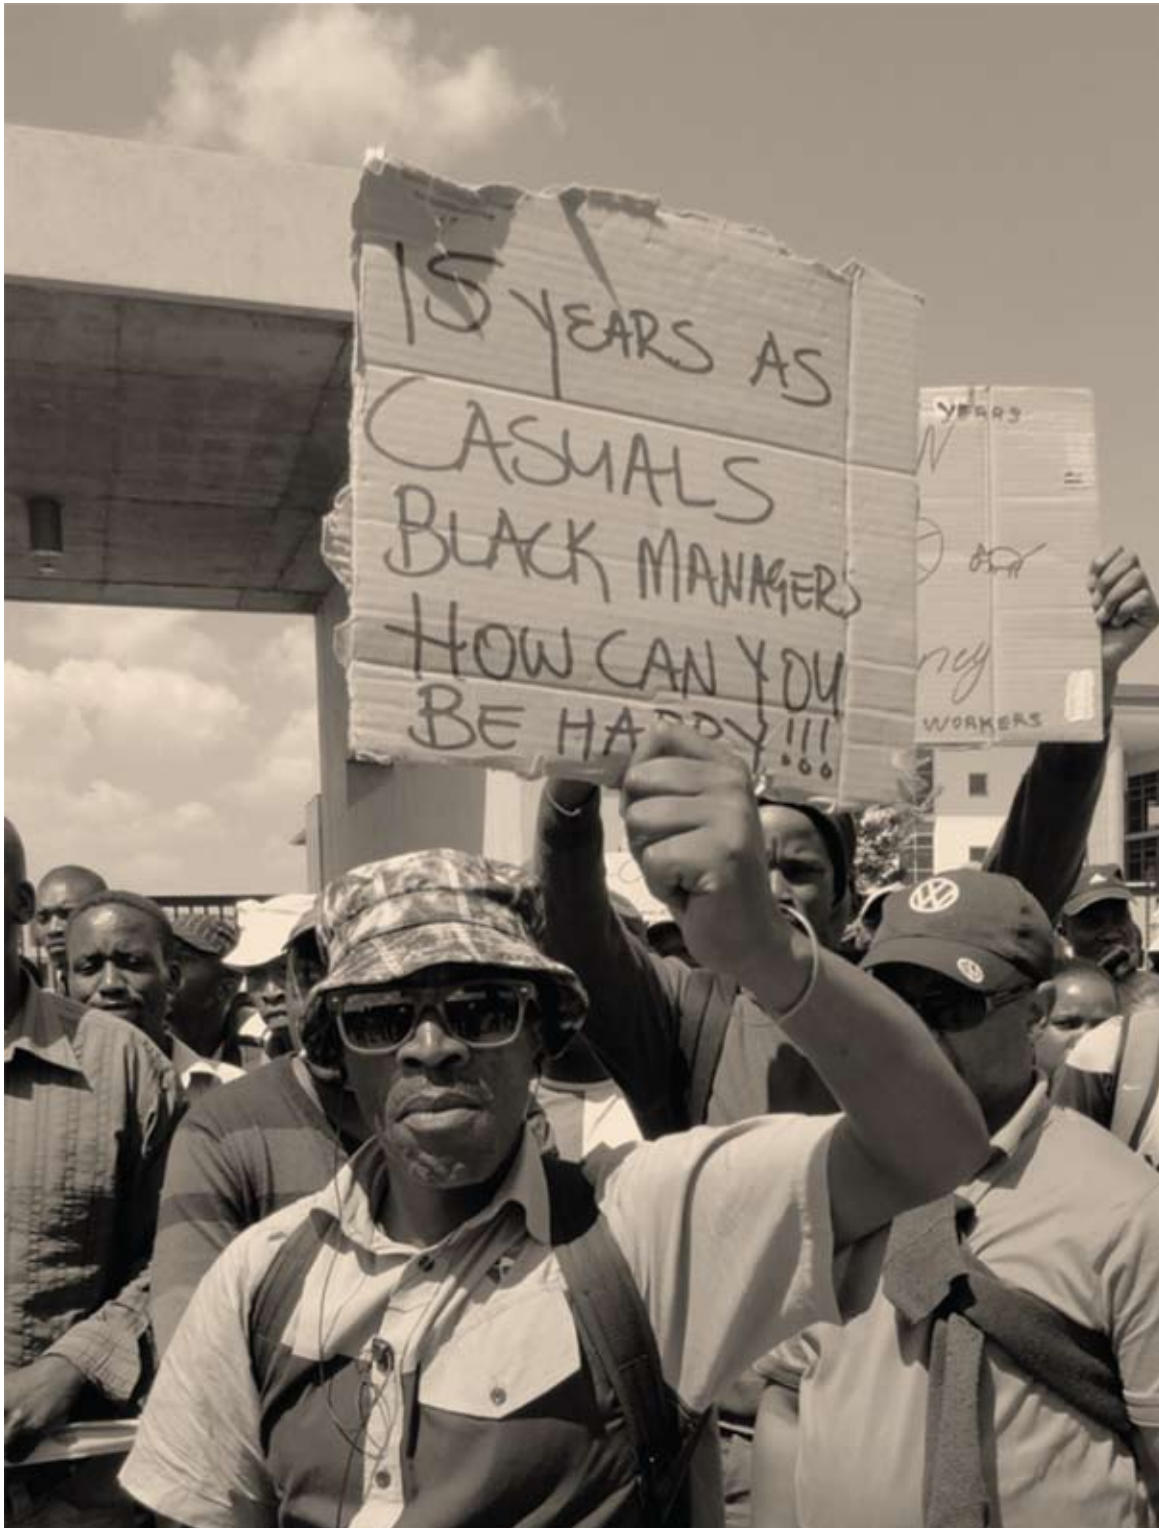 15 YEARS AS
CASUALS
BLACK MANAGERS
HOW CAN YOU
BE HAPPY!!!
YEARS
WORKERS